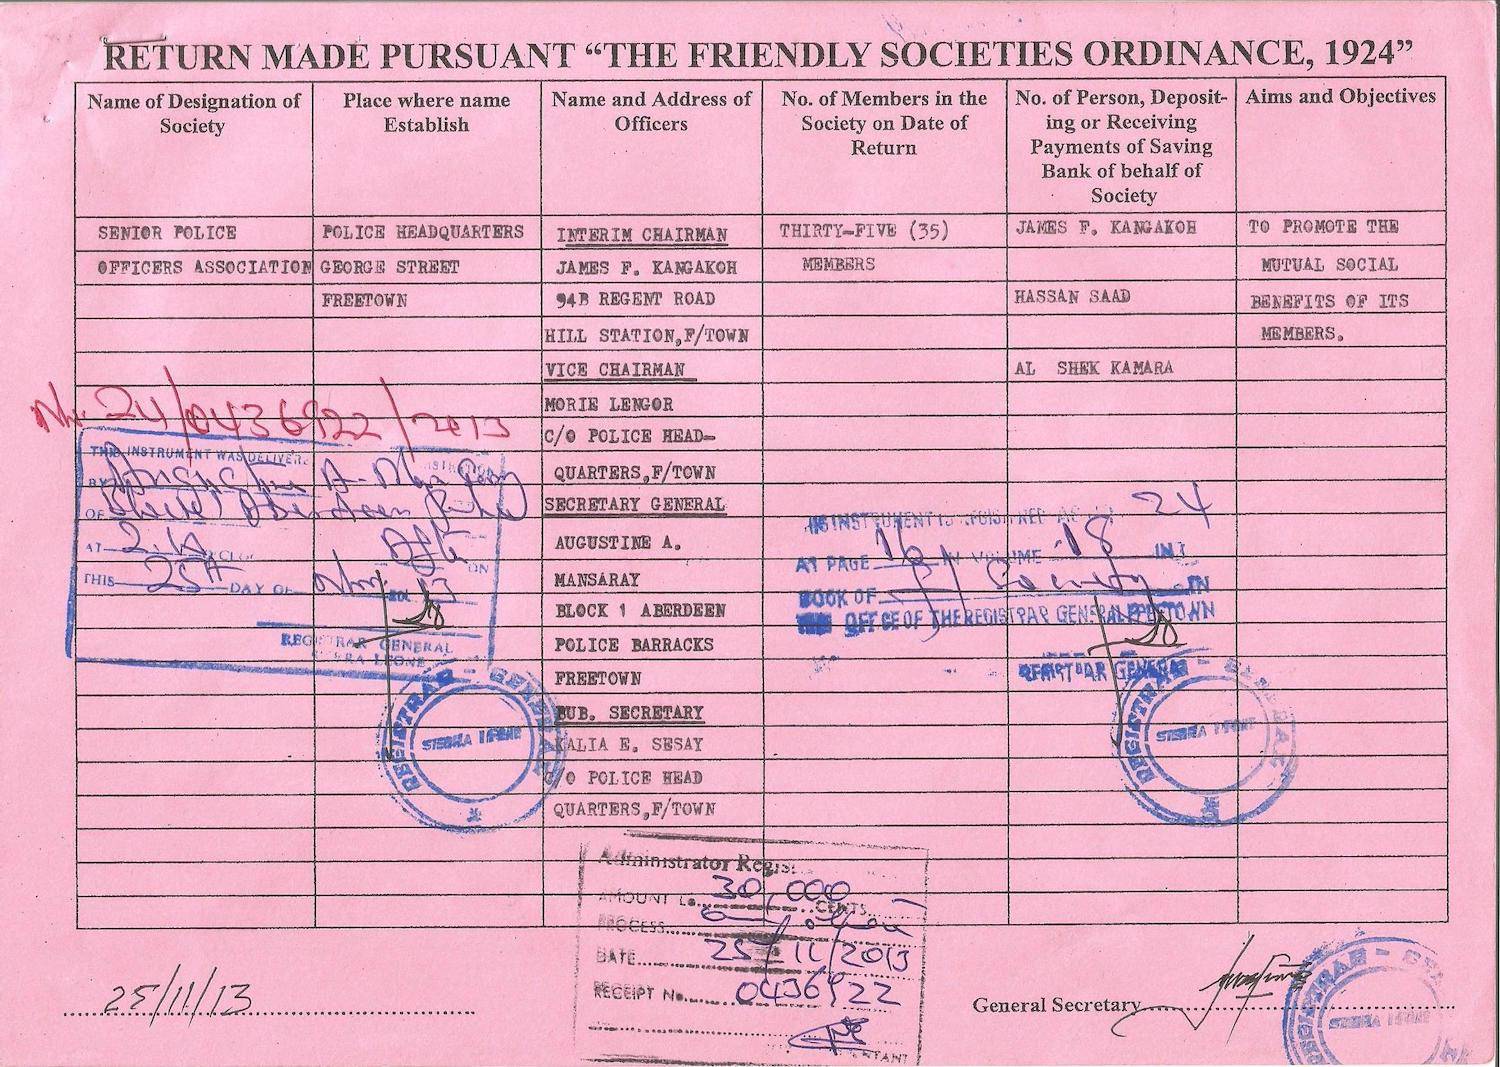 RETURN MADE PURSUANT “THE FRIENDLY SOCIETIES ORDINANCE, 1924”
Name of Designation of
Society
Place where name
Establish
Name and Address of
Officers
No. of Members in the
Society on Date of
Return
No. of Person, Deposit-
ing or Receiving
Payments of Saving
Bank of behalf of
Society
Aims and Objectives
SENIOR POLICE
OFFICERS ASSOCIATION
POLICE HEADQUARTERS
GEORGE STREET
FREETOWN
INTERIM CHAIRMAN
JAMES F. KANGAKOH
94B REGENT ROAD
HILL STATION,F/TOWN
VICE CHAIRMAN
MORIE LENGOR
C/O POLICE HEAD-
QUARTERS,F/TOWN
SECRETARY GENERAL
AUGUSTINE A.
MANSARAY
BLOCK 1 ABERDEEN
POLICE BARRACKS
FREETOWN
SUB. SECRETARY
KALIA E. SESAY
C/O POLICE HEAD
QUARTERS,F/TOWN
THIRTY-FIVE (35)
MEMBERS
JAMES F. KANGAKOH
HASSAN SAAD
AL SHEK KAMARA
TO PROMOTE THE
MUTUAL SOCIAL
BENEFITS OF ITS
MEMBERS.
24/0436922/2013
THIS INSTRUMENT WAS DELIVER
BY
OF Aberdeen
AT
THIS 25th DAY OF
REGISTRAR GENERAL
SIERRA LEONE
REGISTRAR - GENERAL
SIERRA LEONE
INSTRUMENT IS 24
AT PAGE 16 IN VOLUME 18
BOOK OF Society IN
THE OFFICE OF THE REGISTRAR GENERAL FREETOWN
REGISTRAR GENERAL
REGISTRAR - GENERAL
SIERRA LEONE
Administrator Regis
AMOUNT Le 30,000 CENTS
PROCESS
DATE 25/11/2013
RECEIPT No. 0436922
25/11/13
General Secretary
REGISTRAR - GEN
SIERRA LEONE